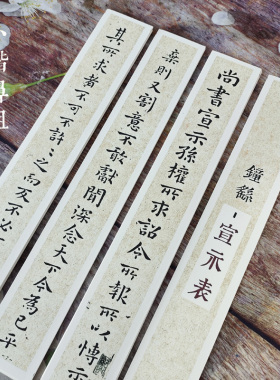 鐘繇
-宣示表
尚書宣示孫權所求詔令所報所以博示
棄則又割意不敢獻聞深念天下今為已平
其所求者不可不許之而反不必